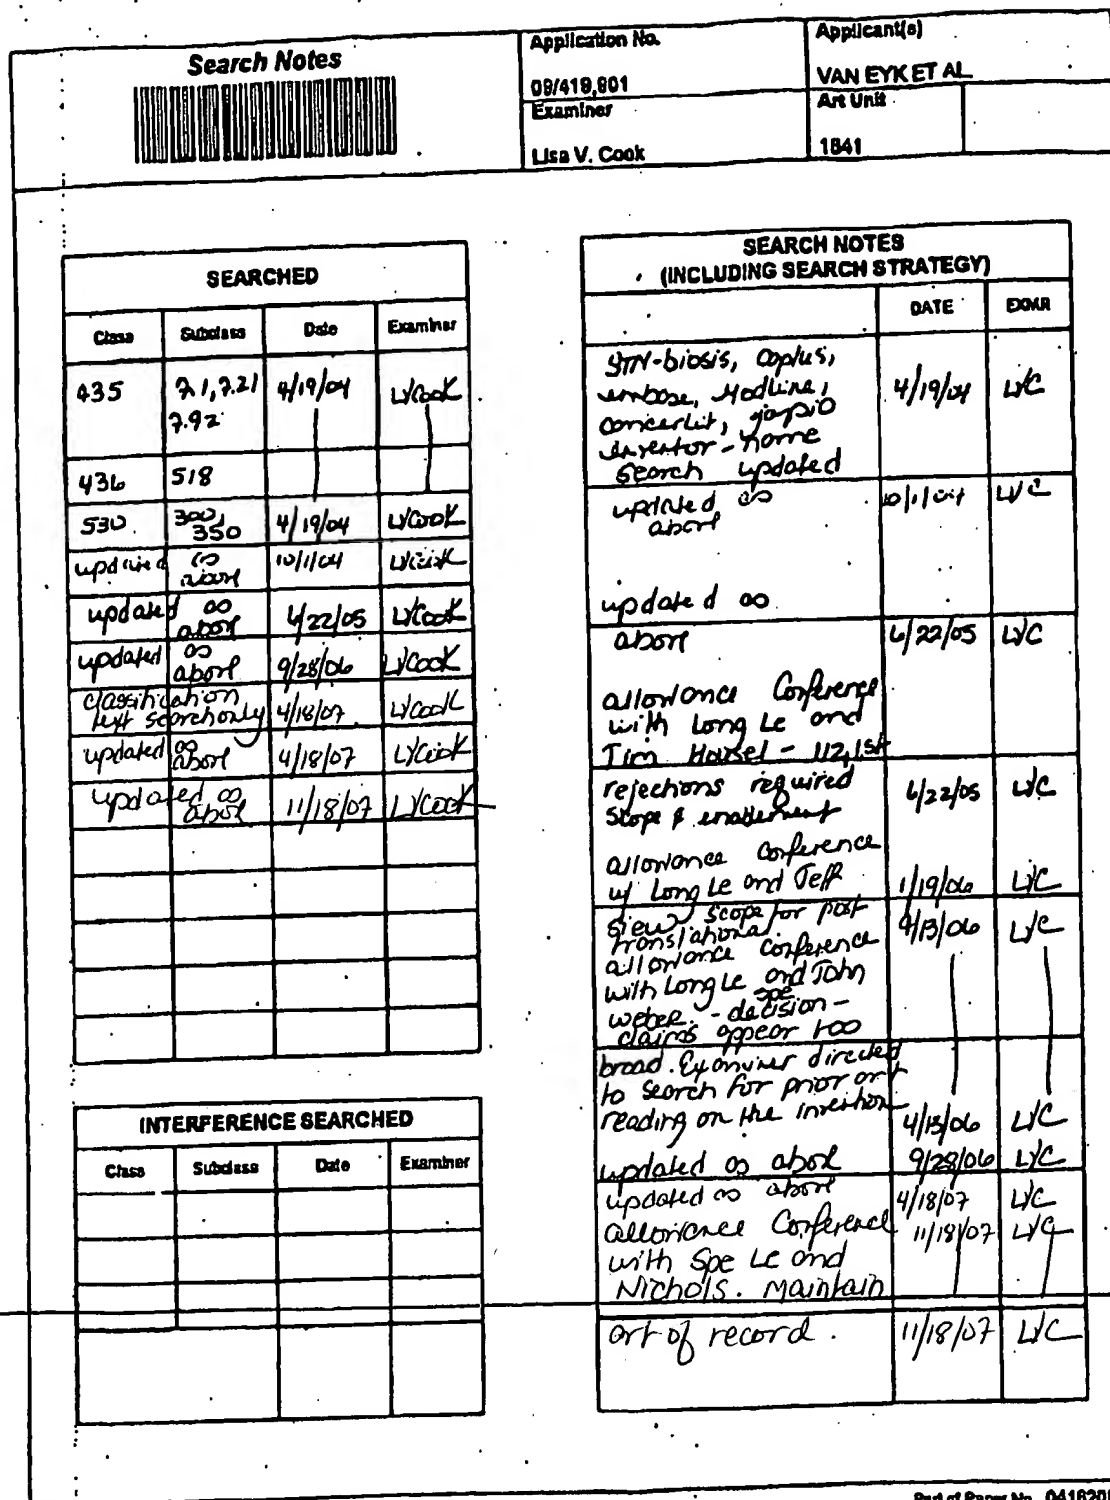 Search Notes
Application No.
09/419,901
Examiner
Lisa V. Cook
Applicant(s)
VAN EYK ET AL
Art Unit
1641
SEARCHED
Class Subclass Date Examiner
435 7.1, 7.21 4/19/04 LVCook
7.92
436 518
530 300, 4/19/04 LVCook
350
updated as 10/1/04 LVCook
above
updated as 6/22/05 LVCook
above
updated as 9/28/06 LVCook
above
classification
text search only 4/18/07 LVCook
updated as 4/18/07 LVCook
above
updated as 11/18/07 LVCook
above
INTERFERENCE SEARCHED
Class Subclass Date Examiner
SEARCH NOTES
(INCLUDING SEARCH STRATEGY)
DATE EXMR
STN-biosis, Caplus,
embase, Medline, 4/19/04 LVC
cancerlit, japio
inventor-name
search updated
updated as 10/1/04 LVC
above
updated as
above 6/22/05 LVC
allowance Conference
with Long Le and
Tim Housel - 112, 1st
rejections required 6/22/05 LVC
scope & enablement
allowance Conference
w/ Long Le and Jeff 1/19/06 LVC
Siew scope for post
translational. 4/13/06 LVC
allowance conference
with Long Le and John
Weber. spe - decision -
claims appear too
broad. Examiner directed
to search for prior art
reading on the invention. 4/13/06 LVC
updated as above 9/28/06 LVC
updated as above 4/18/07 LVC
allowance Conference 11/18/07 LVC
with Spe Le and
Nichols. Maintain
art of record. 11/18/07 LVC
Part of Paper No.